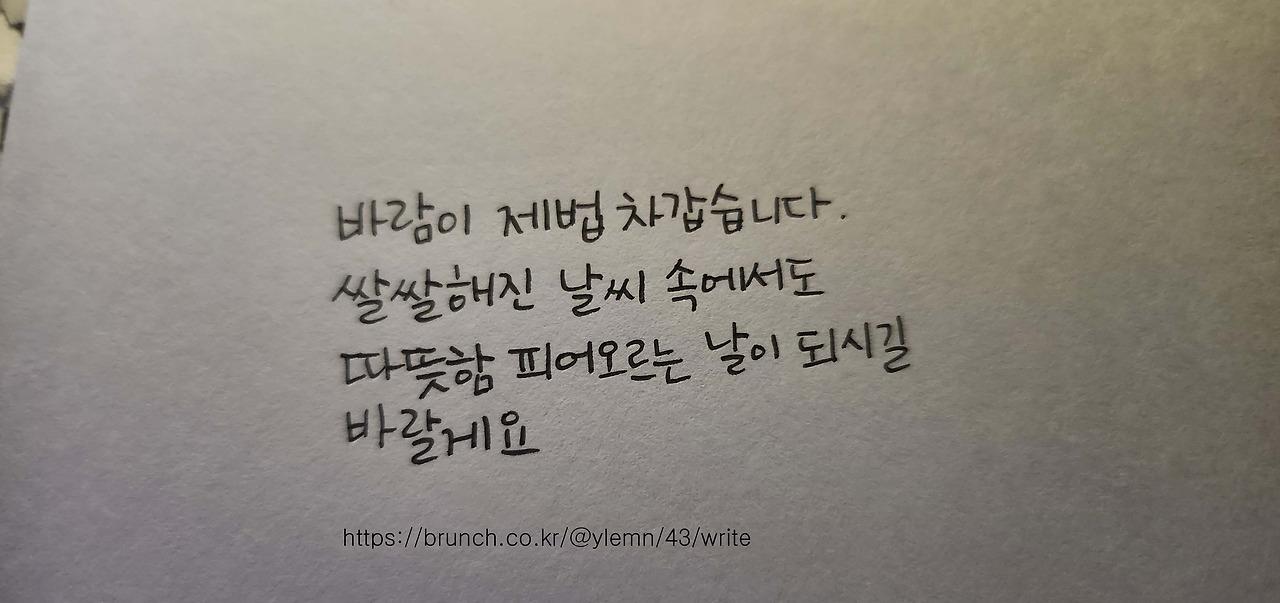 바람이 제법 차갑습니다.
쌀쌀해진 날씨 속에서도
따뜻함 피어오르는 날이 되시길
바랄게요
https://brunch.co.kr/@ylemn/43/write